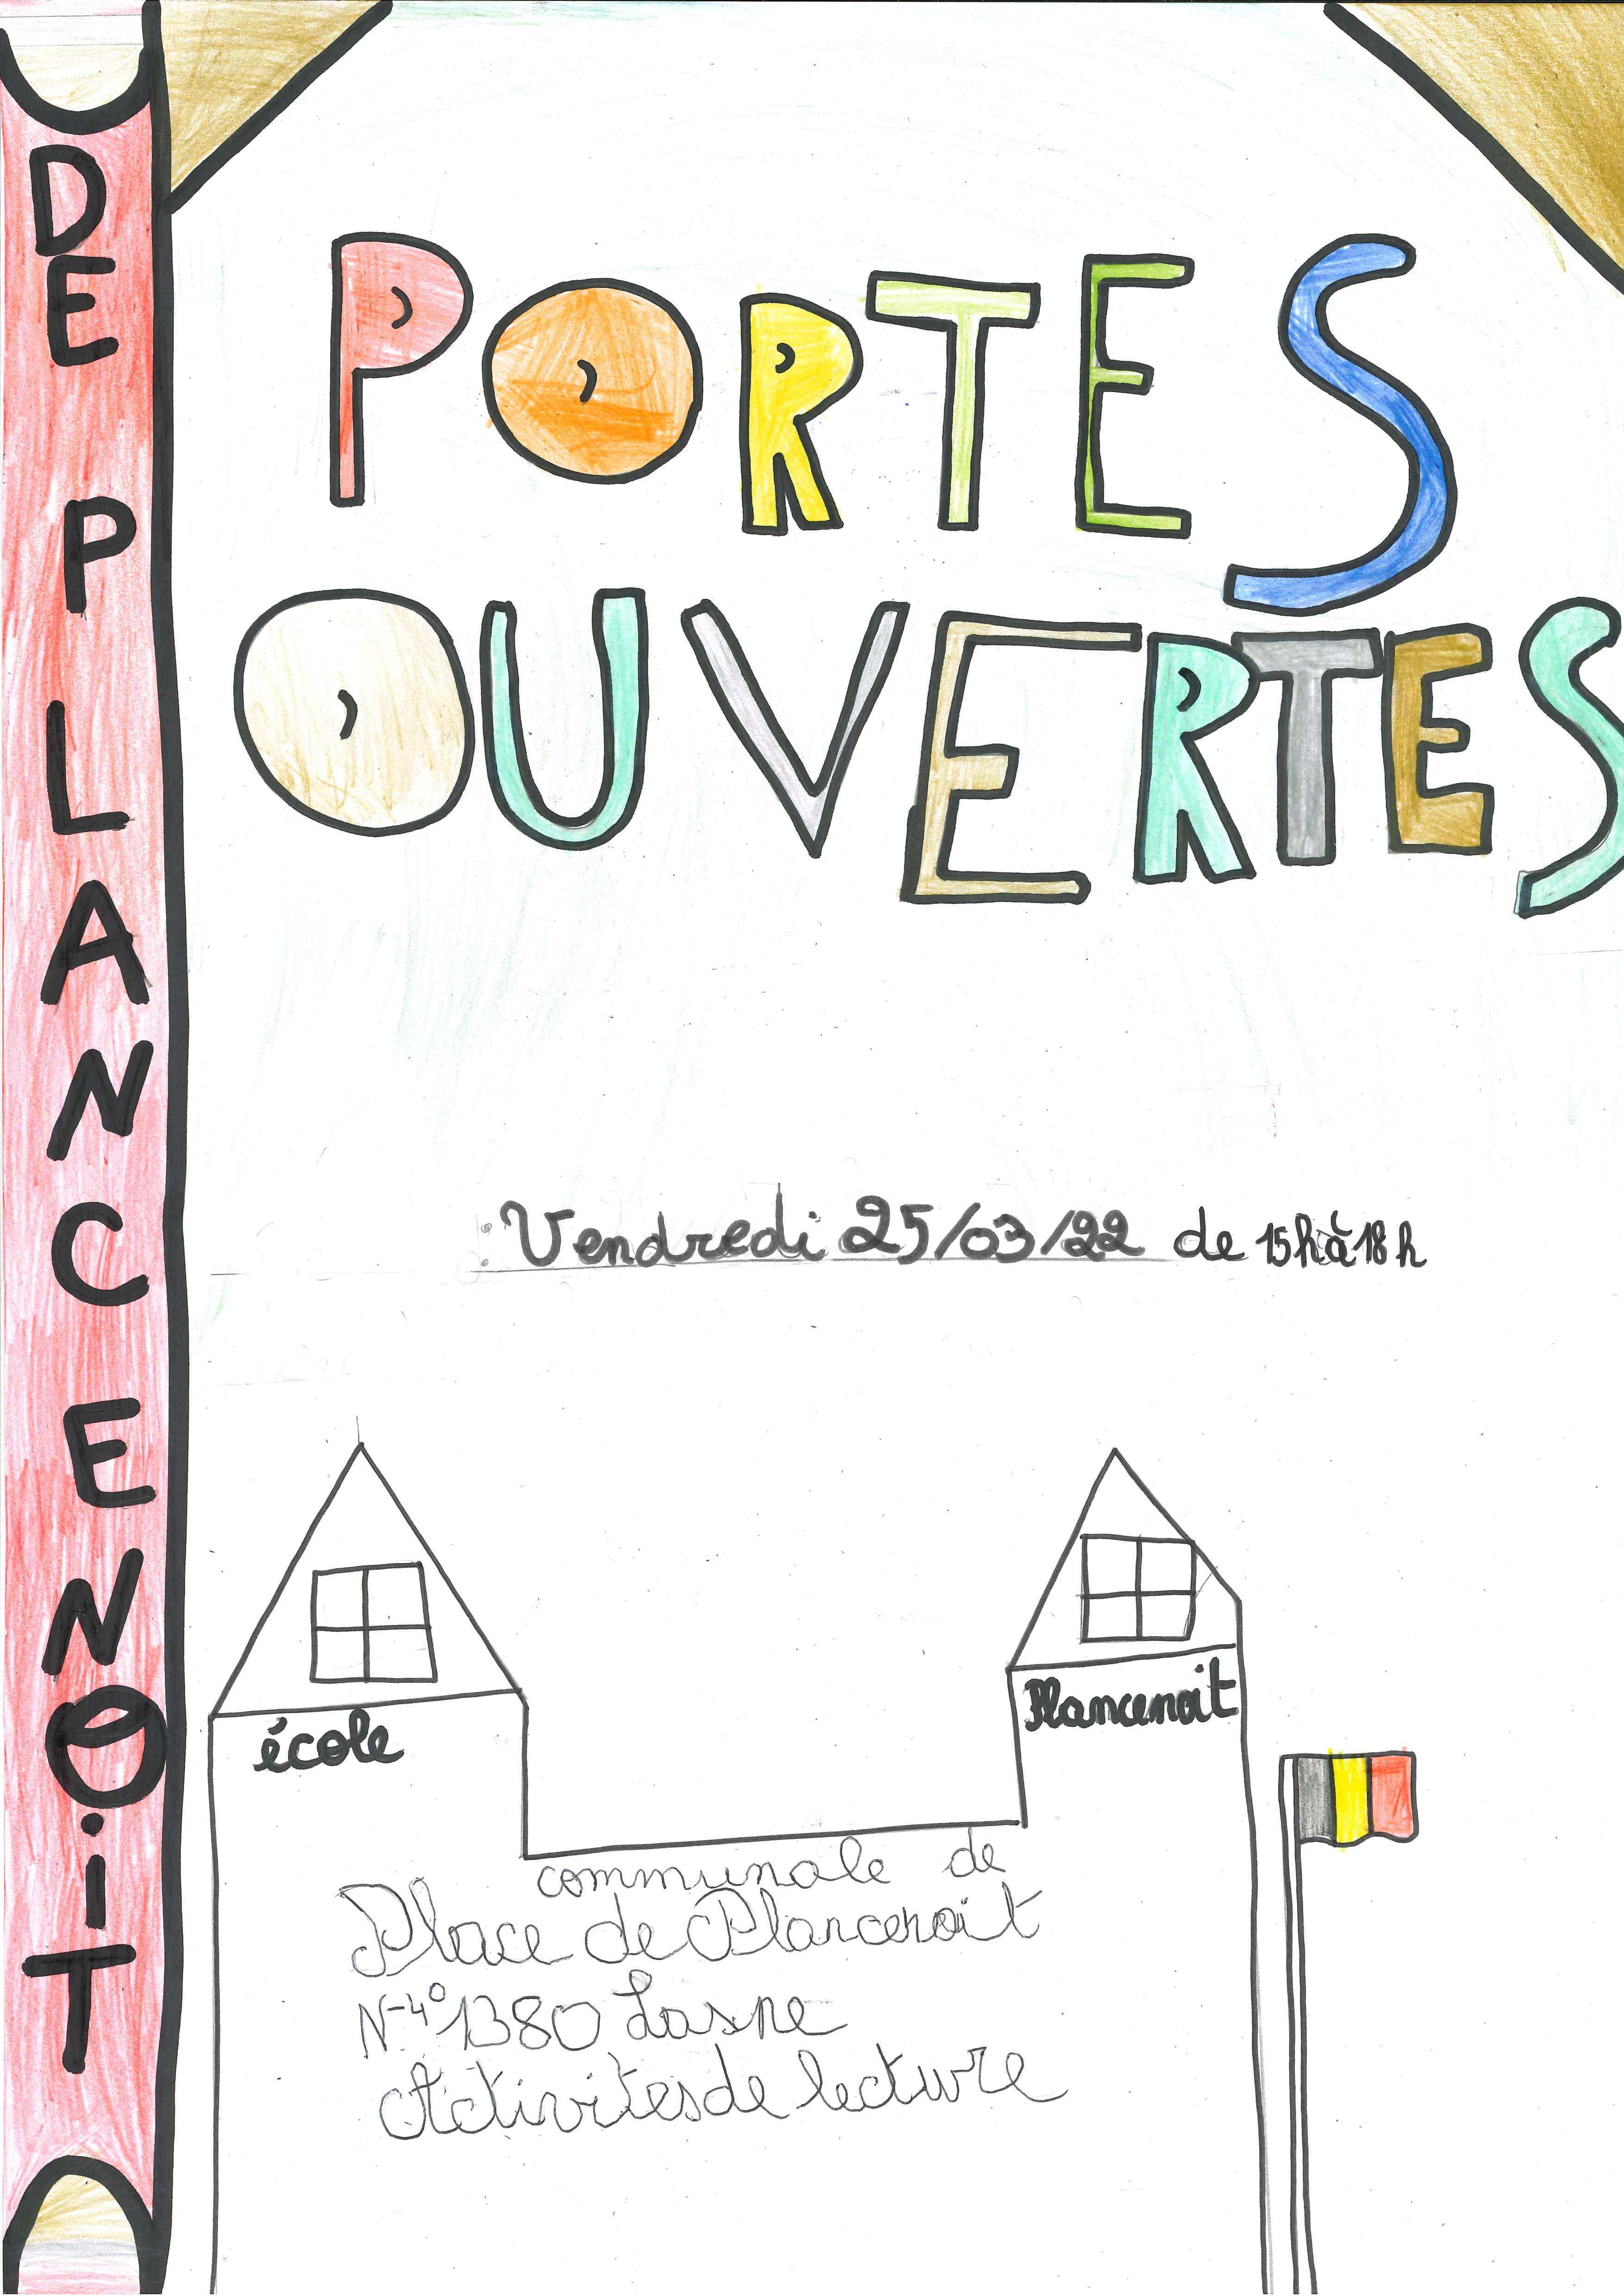 DE PLANCENOIT
PORTES
OUVERTES
: Vendredi 25/03/22 de 15h à 18h
école
Plancenoit
communale de
Place de Plancenoit
N-4° 1380 Lasne
Activites de lecture